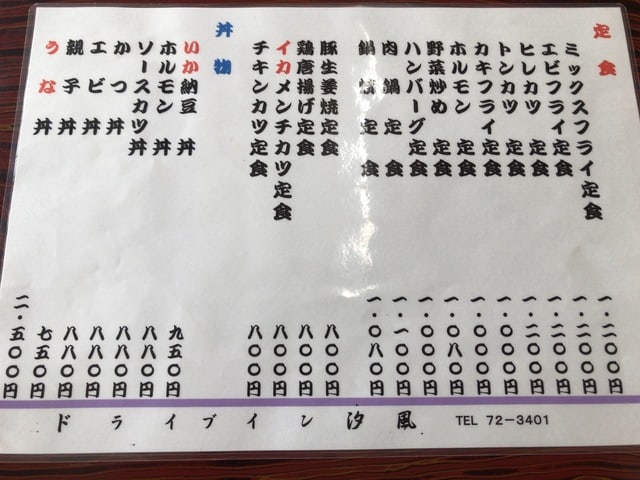 定食
ミックスフライ定食 一・二〇〇円
エビフライ定食 一・〇〇〇円
ヒレカツ定食 一・二〇〇円
トンカツ定食 一・二〇〇円
カキフライ定食 一・〇〇〇円
ホルモン定食 一・〇〇〇円
野菜炒め定食 一・〇八〇円
ハンバーグ定食 一・〇〇〇円
肉鍋定食 一・一〇〇円
鍋焼定食 一・〇八〇円
豚生姜焼定食 八〇〇円
鶏唐揚げ定食 八〇〇円
イカメンチカツ定食 八〇〇円
チキンカツ定食 八〇〇円
丼物
いか納豆丼 九五〇円
ホルモン丼 八八〇円
ソースカツ丼 八八〇円
かつ丼 八八〇円
エビ丼 八八〇円
親子丼 七五〇円
うな丼 二・五〇〇円
ドライブイン汐風 TEL 72-3401